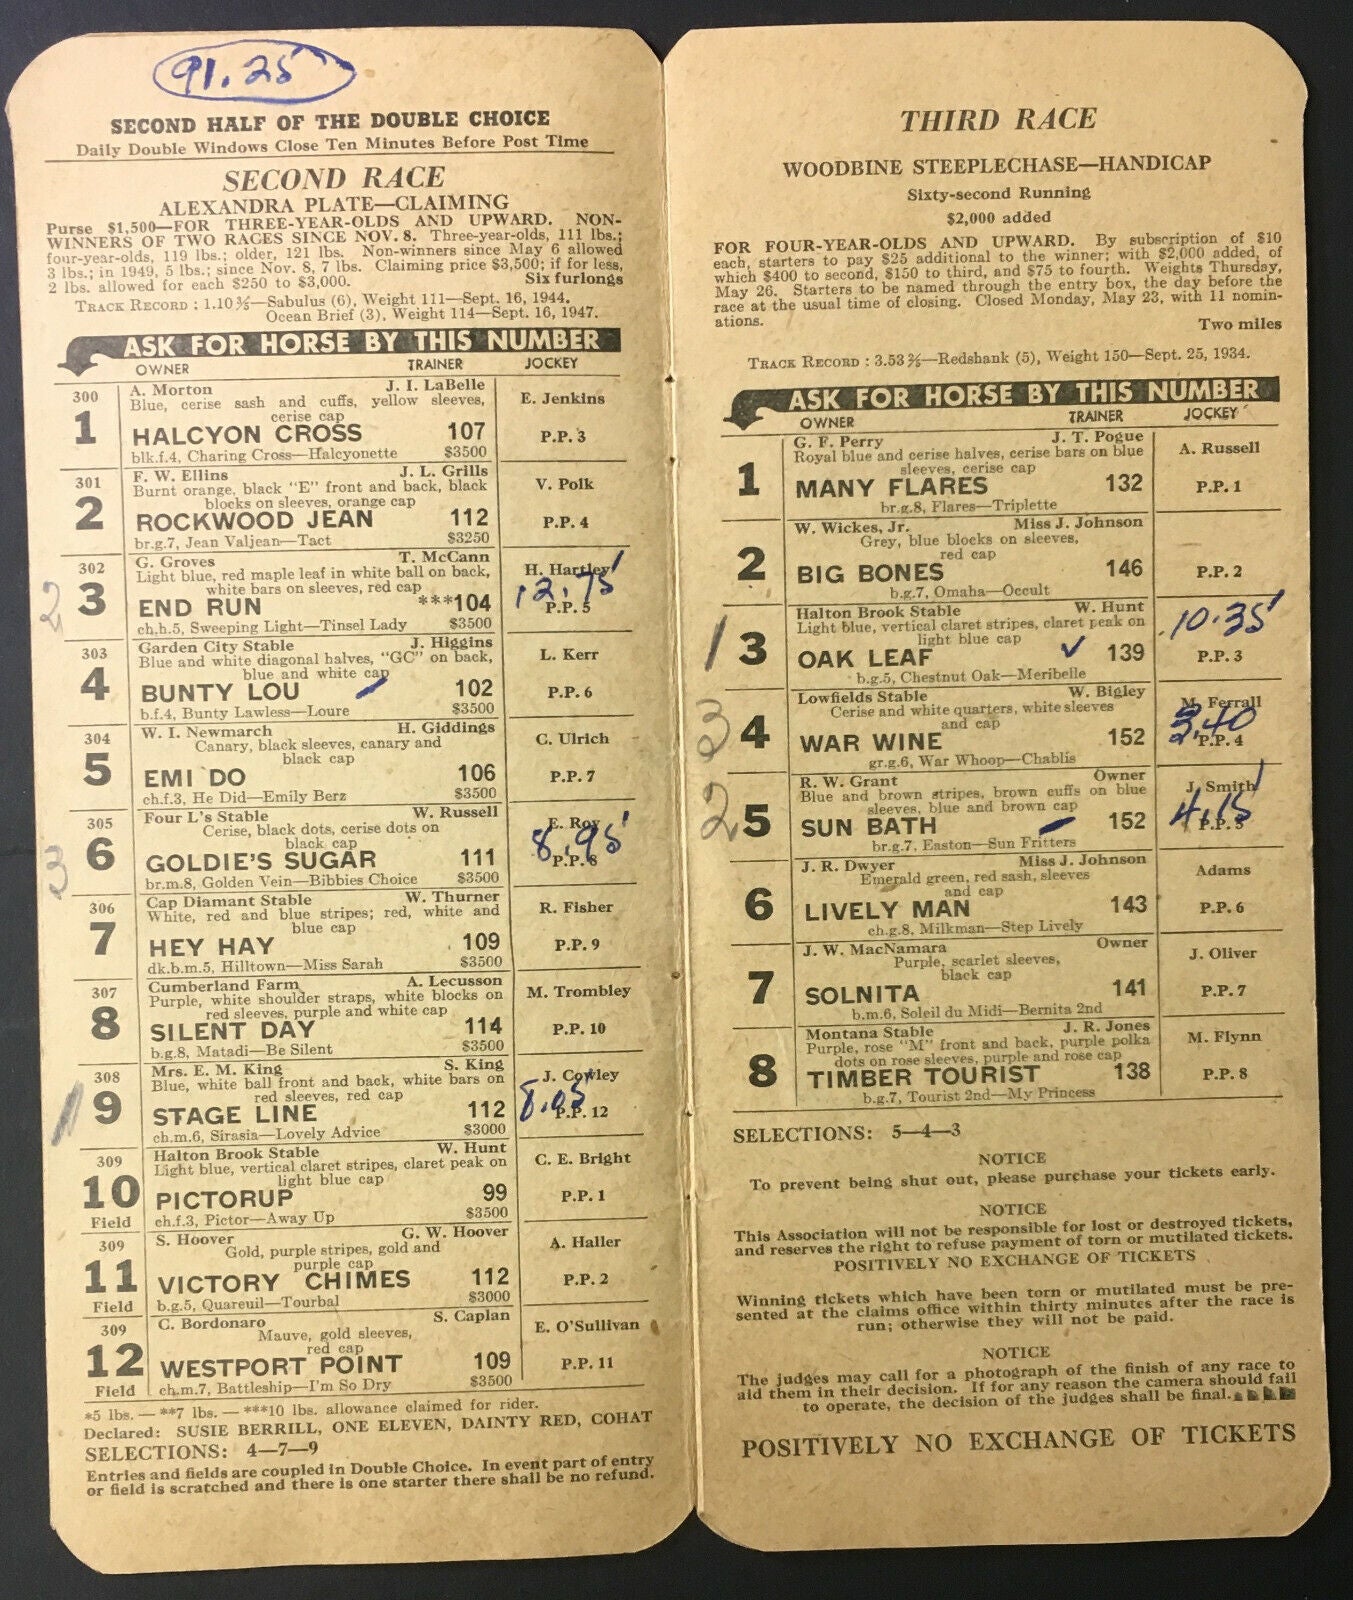 91.25
SECOND HALF OF THE DOUBLE CHOICE
Daily Double Windows Close Ten Minutes Before Post Time
SECOND RACE
ALEXANDRA PLATE—CLAIMING
Purse $1,500—FOR THREE-YEAR-OLDS AND UPWARD. NON-
WINNERS OF TWO RACES SINCE NOV. 8. Three-year-olds, 111 lbs.;
four-year-olds, 119 lbs.; older, 121 lbs. Non-winners since May 6 allowed
3 lbs.; in 1949, 5 lbs.; since Nov. 8, 7 lbs. Claiming price $3,500; if for less,
2 lbs. allowed for each $250 to $3,000. Six furlongs
TRACK RECORD : 1.10 3/5—Sabulus (6), Weight 111—Sept. 16, 1944.
Ocean Brief (3), Weight 114—Sept. 16, 1947.
ASK FOR HORSE BY THIS NUMBER
OWNER TRAINER JOCKEY
300 A. Morton J. I. LaBelle
Blue, cerise sash and cuffs, yellow sleeves, E. Jenkins
cerise cap
1 HALCYON CROSS 107 P.P. 3
blk.f.4, Charing Cross—Halcyonette $3500
301 F. W. Ellins J. L. Grills
Burnt orange, black "E" front and back, black V. Polk
blocks on sleeves, orange cap
2 ROCKWOOD JEAN 112 P.P. 4
br.g.7, Jean Valjean—Tact $3250
302 G. Groves T. McCann
Light blue, red maple leaf in white ball on back, H. Hartley
white bars on sleeves, red cap 12.75
2 3 END RUN ***104 P.P. 5
ch.h.5, Sweeping Light—Tinsel Lady $3500
303 Garden City Stable J. Higgins
Blue and white diagonal halves, "GC" on back, L. Kerr
blue and white cap
4 BUNTY LOU 102 P.P. 6
b.f.4, Bunty Lawless—Loure $3500
304 W. I. Newmarch H. Giddings
Canary, black sleeves, canary and C. Ulrich
black cap
5 EMI DO 106 P.P. 7
ch.f.3, He Did—Emily Berz $3500
305 Four L's Stable W. Russell
Cerise, black dots, cerise dots on E. Roy
black cap 8.95
3 6 GOLDIE'S SUGAR 111 P.P. 8
br.m.8, Golden Vein—Bibbies Choice $3500
306 Cap Diamant Stable W. Thurner
White, red and blue stripes; red, white and R. Fisher
blue cap
7 HEY HAY 109 P.P. 9
dk.b.m.5, Hilltown—Miss Sarah $3500
307 Cumberland Farm A. Lecusson
Purple, white shoulder straps, white blocks on M. Trombley
red sleeves, purple and white cap
8 SILENT DAY 114 P.P. 10
b.g.8, Matadi—Be Silent $3500
308 Mrs. E. M. King S. King
Blue, white ball front and back, white bars on J. Cowley
red sleeves, red cap 8.05
1 9 STAGE LINE 112 P.P. 12
ch.m.6, Sirasia—Lovely Advice $3000
309 Halton Brook Stable W. Hunt
Light blue, vertical claret stripes, claret peak on C. E. Bright
light blue cap
10 PICTORUP 99 P.P. 1
Field ch.f.3, Pictor—Away Up $3500
309 S. Hoover G. W. Hoover
Gold, purple stripes, gold and A. Haller
purple cap
11 VICTORY CHIMES 112 P.P. 2
Field b.g.5, Quareuil—Tourbal $3000
309 C. Bordonaro S. Caplan
Mauve, gold sleeves, E. O'Sullivan
red cap
12 WESTPORT POINT 109 P.P. 11
Field ch.m.7, Battleship—I'm So Dry $3500
*5 lbs. — **7 lbs. — ***10 lbs. allowance claimed for rider.
Declared: SUSIE BERRILL, ONE ELEVEN, DAINTY RED, COHAT
SELECTIONS: 4—7—9
Entries and fields are coupled in Double Choice. In event part of entry
or field is scratched and there is one starter there shall be no refund.
THIRD RACE
WOODBINE STEEPLECHASE—HANDICAP
Sixty-second Running
$2,000 added
FOR FOUR-YEAR-OLDS AND UPWARD. By subscription of $10
each, starters to pay $25 additional to the winner; with $2,000 added, of
which $400 to second, $150 to third, and $75 to fourth. Weights Thursday,
May 26. Starters to be named through the entry box, the day before the
race at the usual time of closing. Closed Monday, May 23, with 11 nomin-
ations. Two miles
TRACK RECORD : 3.53 2/5—Redshank (5), Weight 150—Sept. 25, 1934.
ASK FOR HORSE BY THIS NUMBER
OWNER TRAINER JOCKEY
G. F. Perry J. T. Pogue
Royal blue and cerise halves, cerise bars on blue A. Russell
sleeves, cerise cap
1 MANY FLARES 132 P.P. 1
br.g.8, Flares—Triplette
W. Wickes, Jr. Miss J. Johnson
Grey, blue blocks on sleeves,
red cap
2 BIG BONES 146 P.P. 2
b.g.7, Omaha—Occult
Halton Brook Stable W. Hunt
Light blue, vertical claret stripes, claret peak on 10.35
light blue cap
1 3 OAK LEAF ✓ 139 P.P. 3
b.g.5, Chestnut Oak—Meribelle
Lowfields Stable W. Bigley
Cerise and white quarters, white sleeves M. Ferrall
and cap 3.40
3 4 WAR WINE 152 P.P. 4
gr.g.6, War Whoop—Chablis
R. W. Grant Owner
Blue and brown stripes, brown cuffs on blue J. Smith
sleeves, blue and brown cap 4.15
2 5 SUN BATH 152 P.P. 5
br.g.7, Easton—Sun Fritters
J. R. Dwyer Miss J. Johnson
Emerald green, red sash, sleeves Adams
and cap
6 LIVELY MAN 143 P.P. 6
ch.g.8, Milkman—Step Lively
J. W. MacNamara Owner
Purple, scarlet sleeves, J. Oliver
black cap
7 SOLNITA 141 P.P. 7
b.m.6, Soleil du Midi—Bernita 2nd
Montana Stable J. R. Jones
Purple, rose "M" front and back, purple polka M. Flynn
dots on rose sleeves, purple and rose cap
8 TIMBER TOURIST 138 P.P. 8
b.g.7, Tourist 2nd—My Princess
SELECTIONS: 5—4—3
NOTICE
To prevent being shut out, please purchase your tickets early.
NOTICE
This Association will not be responsible for lost or destroyed tickets,
and reserves the right to refuse payment of torn or mutilated tickets.
POSITIVELY NO EXCHANGE OF TICKETS
Winning tickets which have been torn or mutilated must be pre-
sented at the claims office within thirty minutes after the race is
run; otherwise they will not be paid.
NOTICE
The judges may call for a photograph of the finish of any race to
aid them in their decision. If for any reason the camera should fail
to operate, the decision of the judges shall be final.
POSITIVELY NO EXCHANGE OF TICKETS